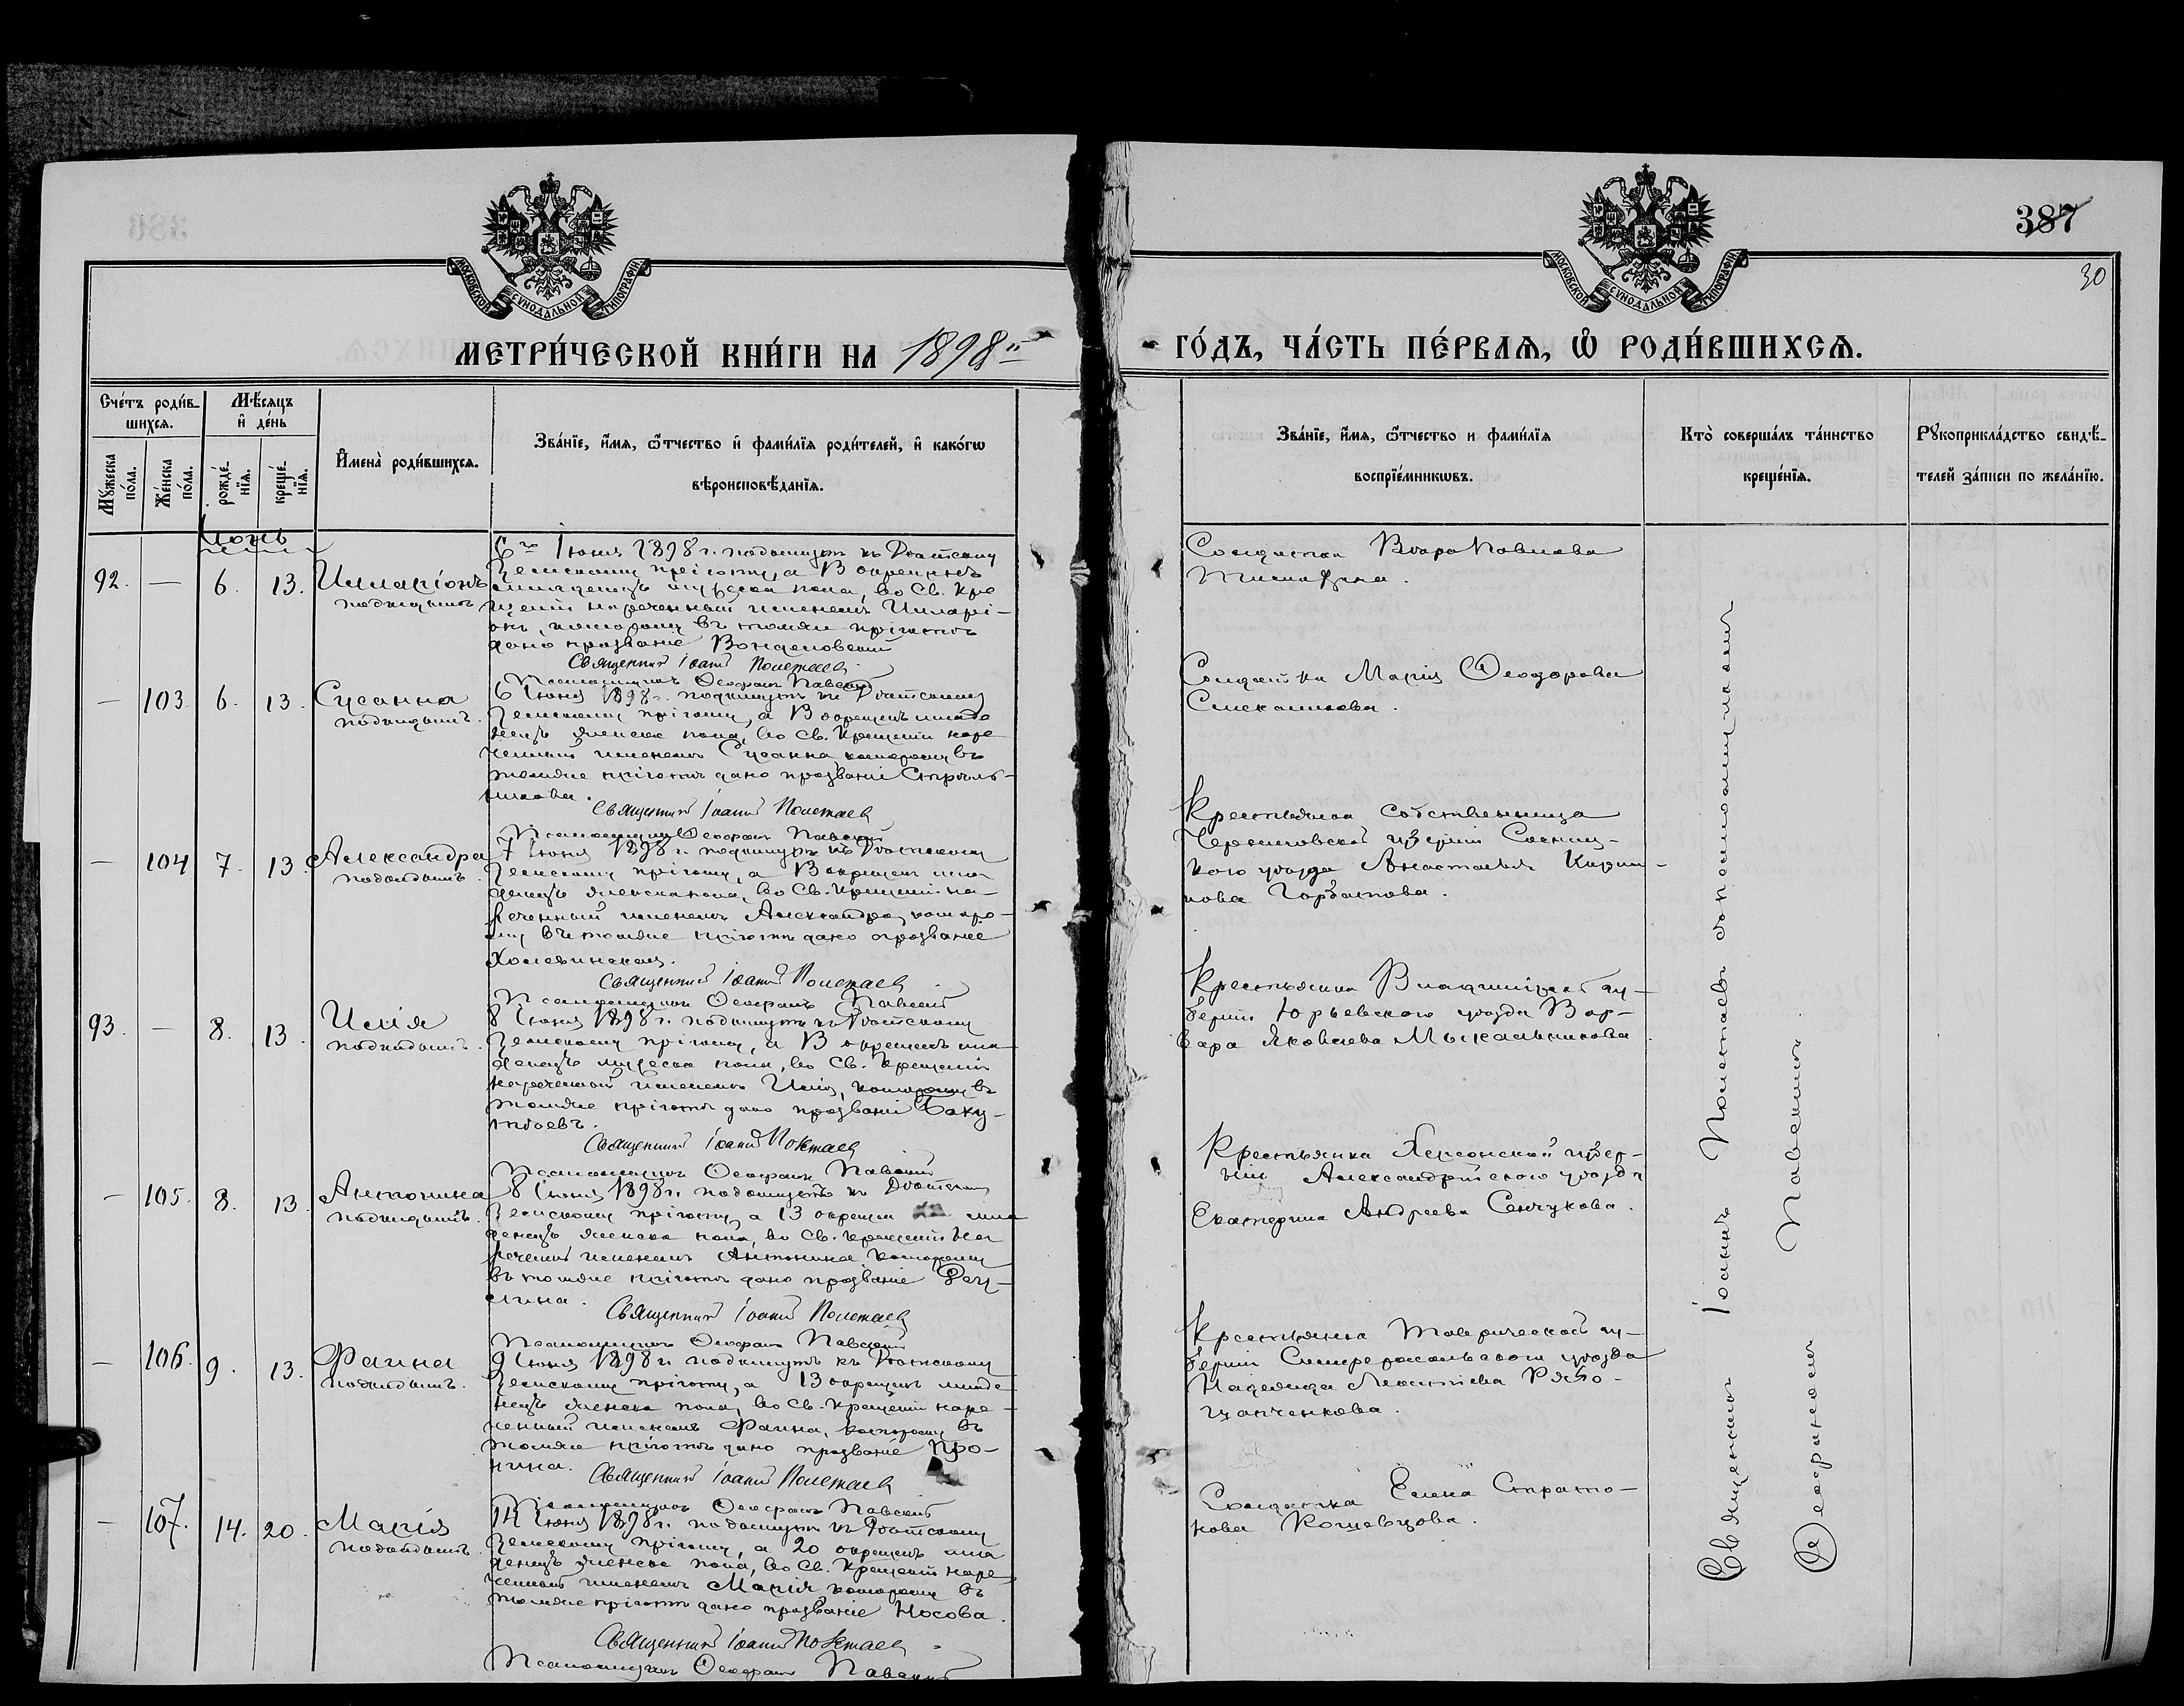 387
30
МОСКОВСКОЙ СУНОДАЛЬНОЙ ТИПОГРАФІИ
МОСКОВСКОЙ СУНОДАЛЬНОЙ ТИПОГРАФІИ
МЕТРИ́ЧЕСКОЙ КНИ́ГИ НА 1898й
ГО́ДЪ, ЧА́СТЬ ПЕ́РВАѦ, Ѡ҆ РОДИ́ВШИХСѦ.
Сче́тъ роди́в-
шихся.
Мѣ́сяцъ
и҆ де́нь
Му́жеска по́ла.
Же́нска по́ла.
рожде́-
нїя.
креще́-
нїя.
И҆мена̀ роди́вшихся.
Зва́нїе, и҆́мя, ѻ҆́тчество и҆ фами́лїя роди́телей, и҆ како́гѡ
вѣроисповѣ́данїя.
Зва́нїе, и҆́мя, ѻ҆́тчество и фами́лїя
воспрїе́мникѡвъ.
Кто̀ соверша́лъ та́инство
креще́нїя.
Рꙋкоприкла́дство свидѣ́-
телей за́писи по жела́нїю.
Іюнь
92. — 6. 13. Илларіонъ
подкидышъ
6го Іюня 1898 г. подкинутъ къ Дѣтскому
Земскому пріюту, а 13 окрещенъ
младенецъ мужеска пола, во Св. Кре
щеніи нареченный именемъ Илларі-
онъ, которому въ томже пріютѣ
дано прозваніе
Священникъ Іоаннъ Полетаевъ
Псаломщикъ Ѳеофанъ Павскій
Солдатка Павлова
— 103 6. 13. Сусанна
подкидышъ.
6 Іюня 1898 г. подкинутъ къ Дѣтскому
Земскому пріюту, а 13 окрещенъ младе
нецъ женска пола, во Св. Крещеніи наре
ченный именемъ Сусанна которому въ
томже пріютѣ дано прозваніе Стрѣль-
никова.
Священникъ Іоаннъ Полетаевъ
Псаломщикъ Ѳеофанъ Павскій
Солдатка Марія Ѳеодорова
— 104 7. 13. Александра
подкидышъ.
7 Іюня 1898 г. подкинутъ къ Дѣтскому
Земскому пріюту, а 13 окрещенъ мла
денецъ женска пола, во Св. Крещеніи на-
реченный именемъ Александра, которо-
му въ томже пріютѣ дано прозваніе
Священникъ Іоаннъ Полетаевъ
Псаломщикъ Ѳеофанъ Павскій
Крестьянка собственница
Черниговской губерніи Сосниц-
кого уѣзда Анастасія Кирил-
лова Горбатова.
93. — 8. 13. Илія
подкидышъ.
8 Іюня 1898 г. подкинутъ къ Дѣтскому
Земскому пріюту, а 13 окрещенъ мла
денецъ мужеска пола, во Св. Крещеніи
нареченный именемъ Илія, которому въ
томже пріютѣ дано прозваніе
Священникъ Іоаннъ Полетаевъ
Псаломщикъ Ѳеофанъ Павскій
Крестьянка Владимірской гу-
берніи Юрьевского уѣзда Вар-
вара Яковлева Мыкальникова
— 105. 8. 13 Антонина
подкидышъ.
8 Іюня 1898 г. подкинутъ къ Дѣтскому
Земскому пріюту, а 13 окрещенъ мла
денецъ женска пола, во Св. Крещеніи на
реченный именемъ Антонина, которому
въ томже пріютѣ дано прозваніе
Священникъ Іоаннъ Полетаевъ
Псаломщикъ Ѳеофанъ Павскій
Крестьянка Херсонской губер-
ніи Александрійского уѣзда
Екатерина Андреева Сенчукова.
— 106. 9. 13. Фаина
подкидышъ.
9 Іюня 1898 г. подкинутъ къ Дѣтскому
Земскому пріюту, а 13 окрещенъ младе
нецъ женска пола, во Св. Крещеніи наре-
ченный именемъ Фаина, которому въ
томже пріютѣ дано прозваніе Про-
нина.
Священникъ Іоаннъ Полетаевъ
Псаломщикъ Ѳеофанъ Павскій
Крестьянка Таврической гу-
берніи Симферопольского уѣзда
Надежда Леонтіева Рябо-
— 107. 14. 20. Марія
подкидышъ
14 Іюня 1898 г. подкинутъ къ Дѣтскому
Земскому пріюту, а 20 окрещенъ мла
денецъ женска пола, во Св. Крещеніи наре
ченный именемъ Марія которому въ
томже пріютѣ дано прозваніе Носова.
Священникъ Іоаннъ Полетаевъ
Псаломщикъ Ѳеофанъ Павскій
Солдатка Елена Страто-
нова
Священникъ Іоаннъ Полетаевъ съ псаломщикомъ
Ѳеофаномъ Павскимъ